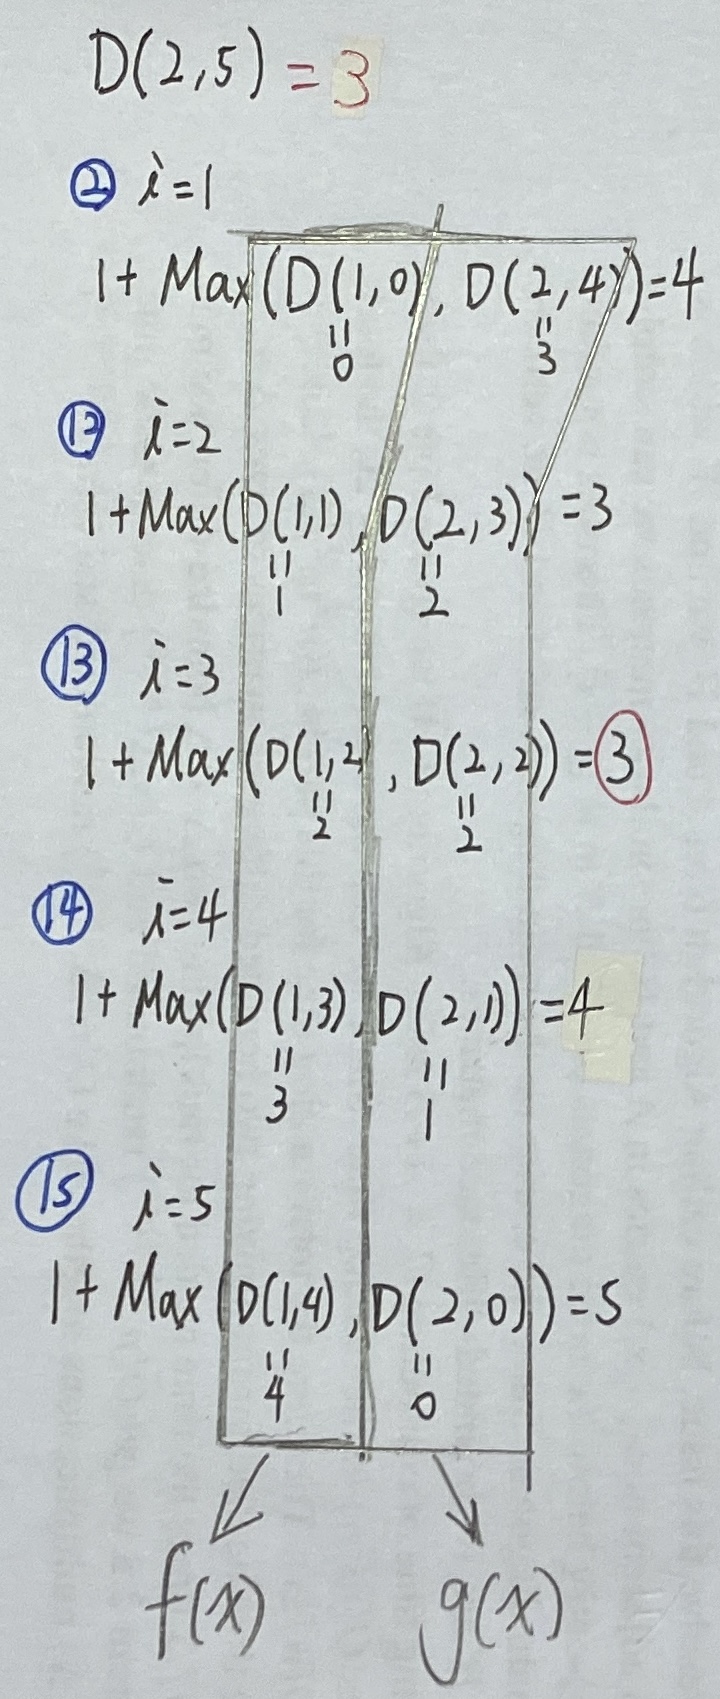 D(2,5) = 3
② i=1
1+ Max(D(1,0), D(2,4))=4
= 0 = 3
⑫ i=2
1+Max(D(1,1), D(2,3)) =3
= 1 = 2
⑬ i=3
1+Max(D(1,2), D(2,2)) =3
= 2 = 2
⑭ i=4
1+ Max(D(1,3), D(2,1)) =4
= 3 = 1
⑮ i=5
1+ Max(D(1,4), D(2,0)) =5
= 4 = 0
f(x) g(x)